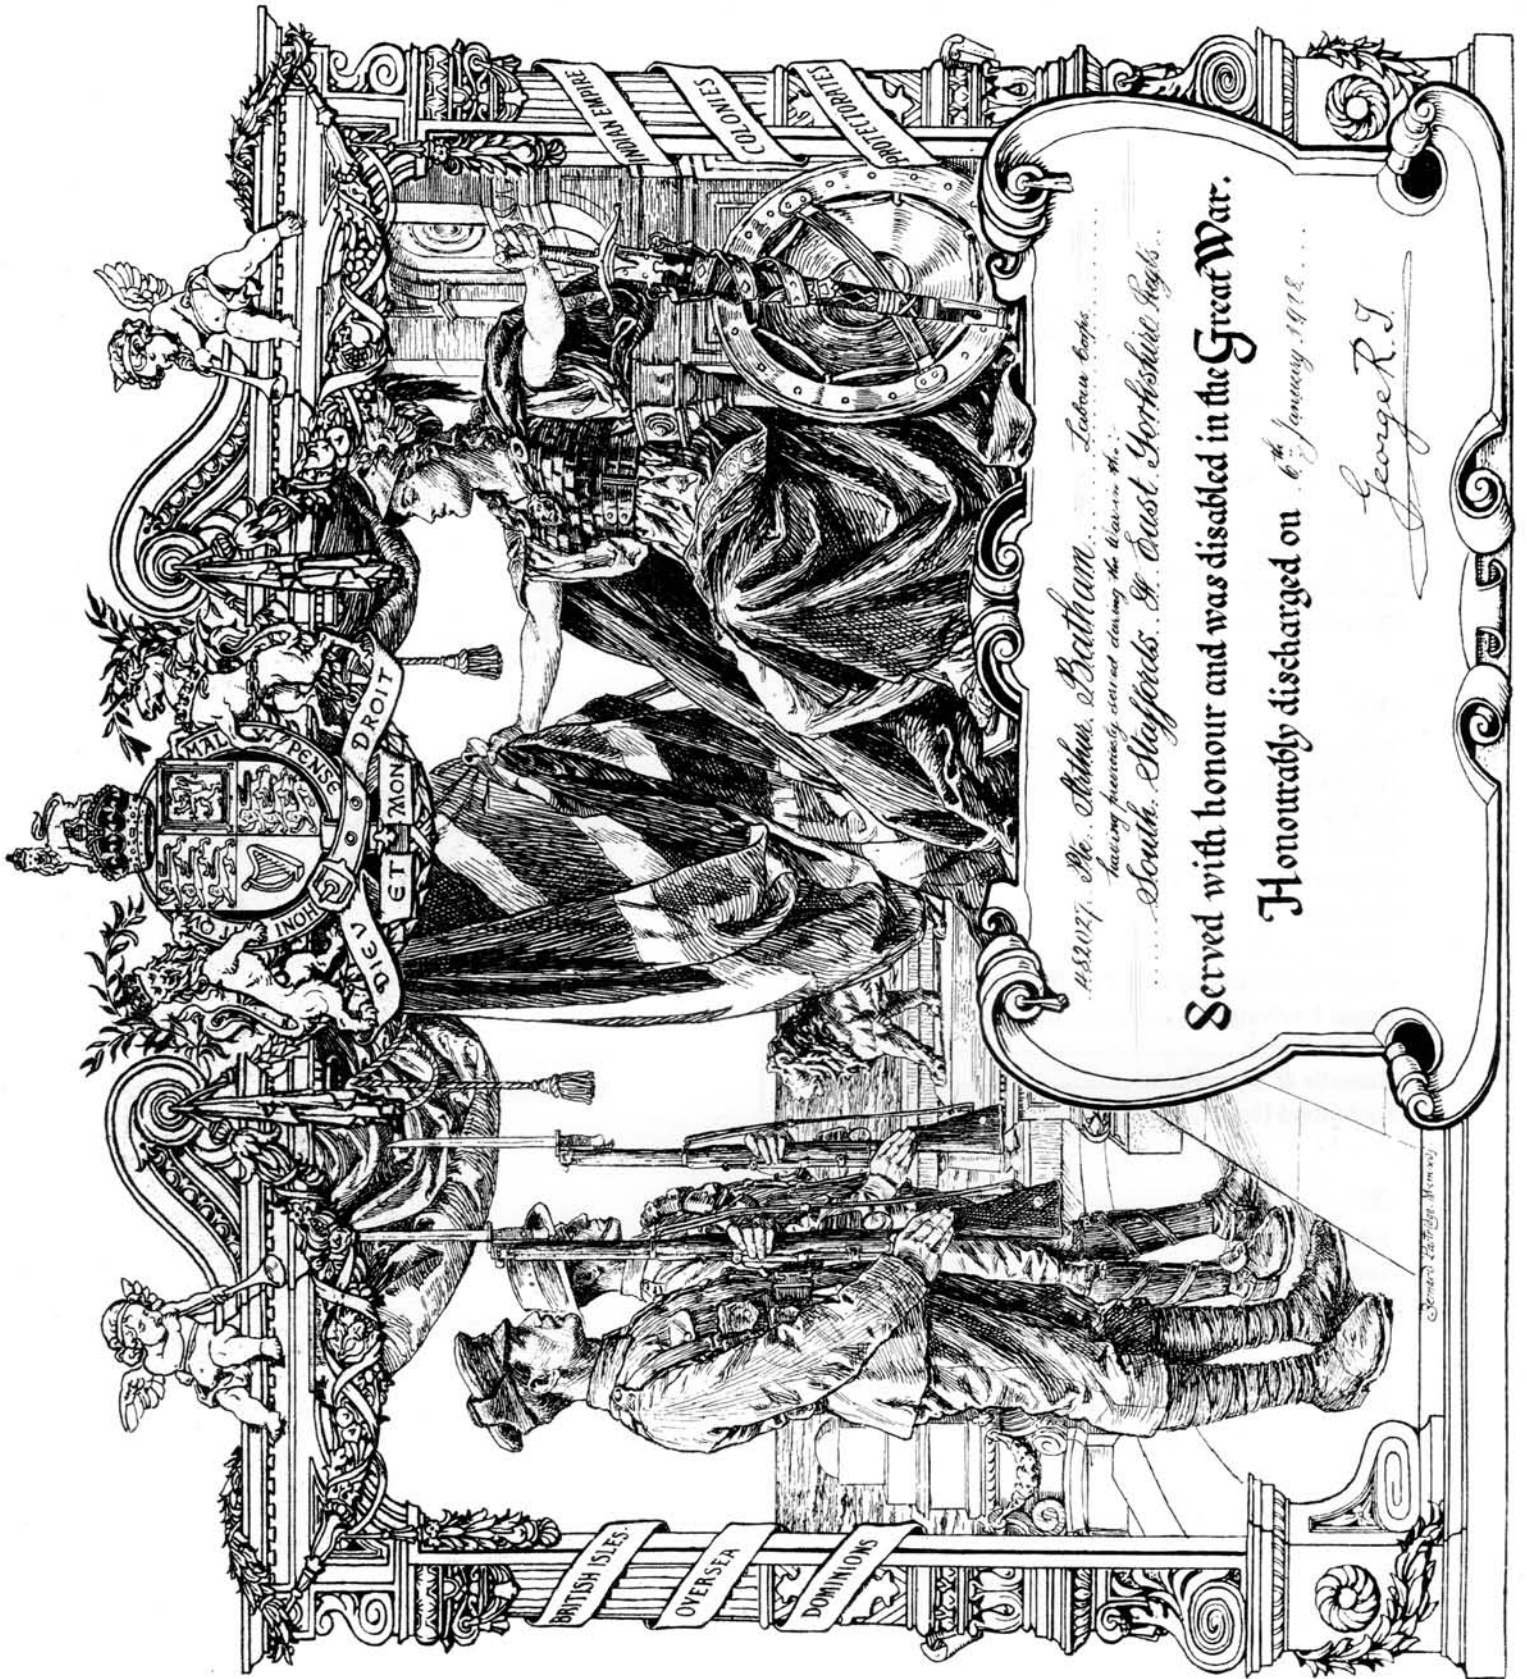 HONI SOIT Q MAL Y PENSE
DIEU ET MON DROIT
BRITISH ISLES.
OVERSEA
DOMINIONS
INDIAN EMPIRE
COLONIES
PROTECTORATES
Pte. Arthur Batham. Labour Corps.
having previously served during the war in the
South Staffords. & East Yorkshire Regts.
Served with honour and was disabled in the Great War.
Honourably discharged on 6th January 1918
George R.I.
Bernard Partridge.